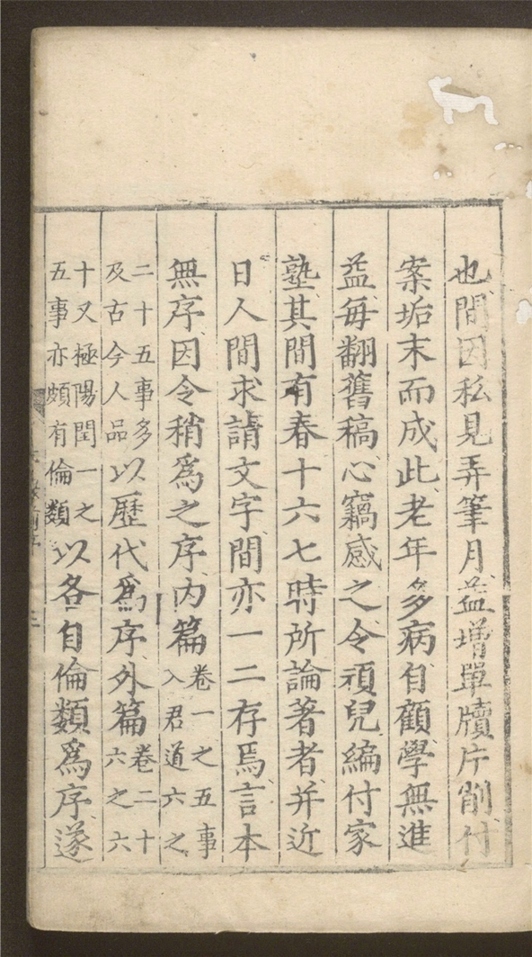 也間因私見弄筆月益增單牘片削付
案垢末而成此老年多病自顧學無進
益每翻舊稿心竊感之令頑兒編付家
塾其間有春十六七時所論著者并近
日人間求請文字間亦一二存焉言本
無序因令稍爲之序內篇卷一之五事入君道六之
二十五事多及古今人品以歷代爲序外篇卷二十六之六
十又極陽閏一之五事亦頗有倫類以各自倫類爲序遂